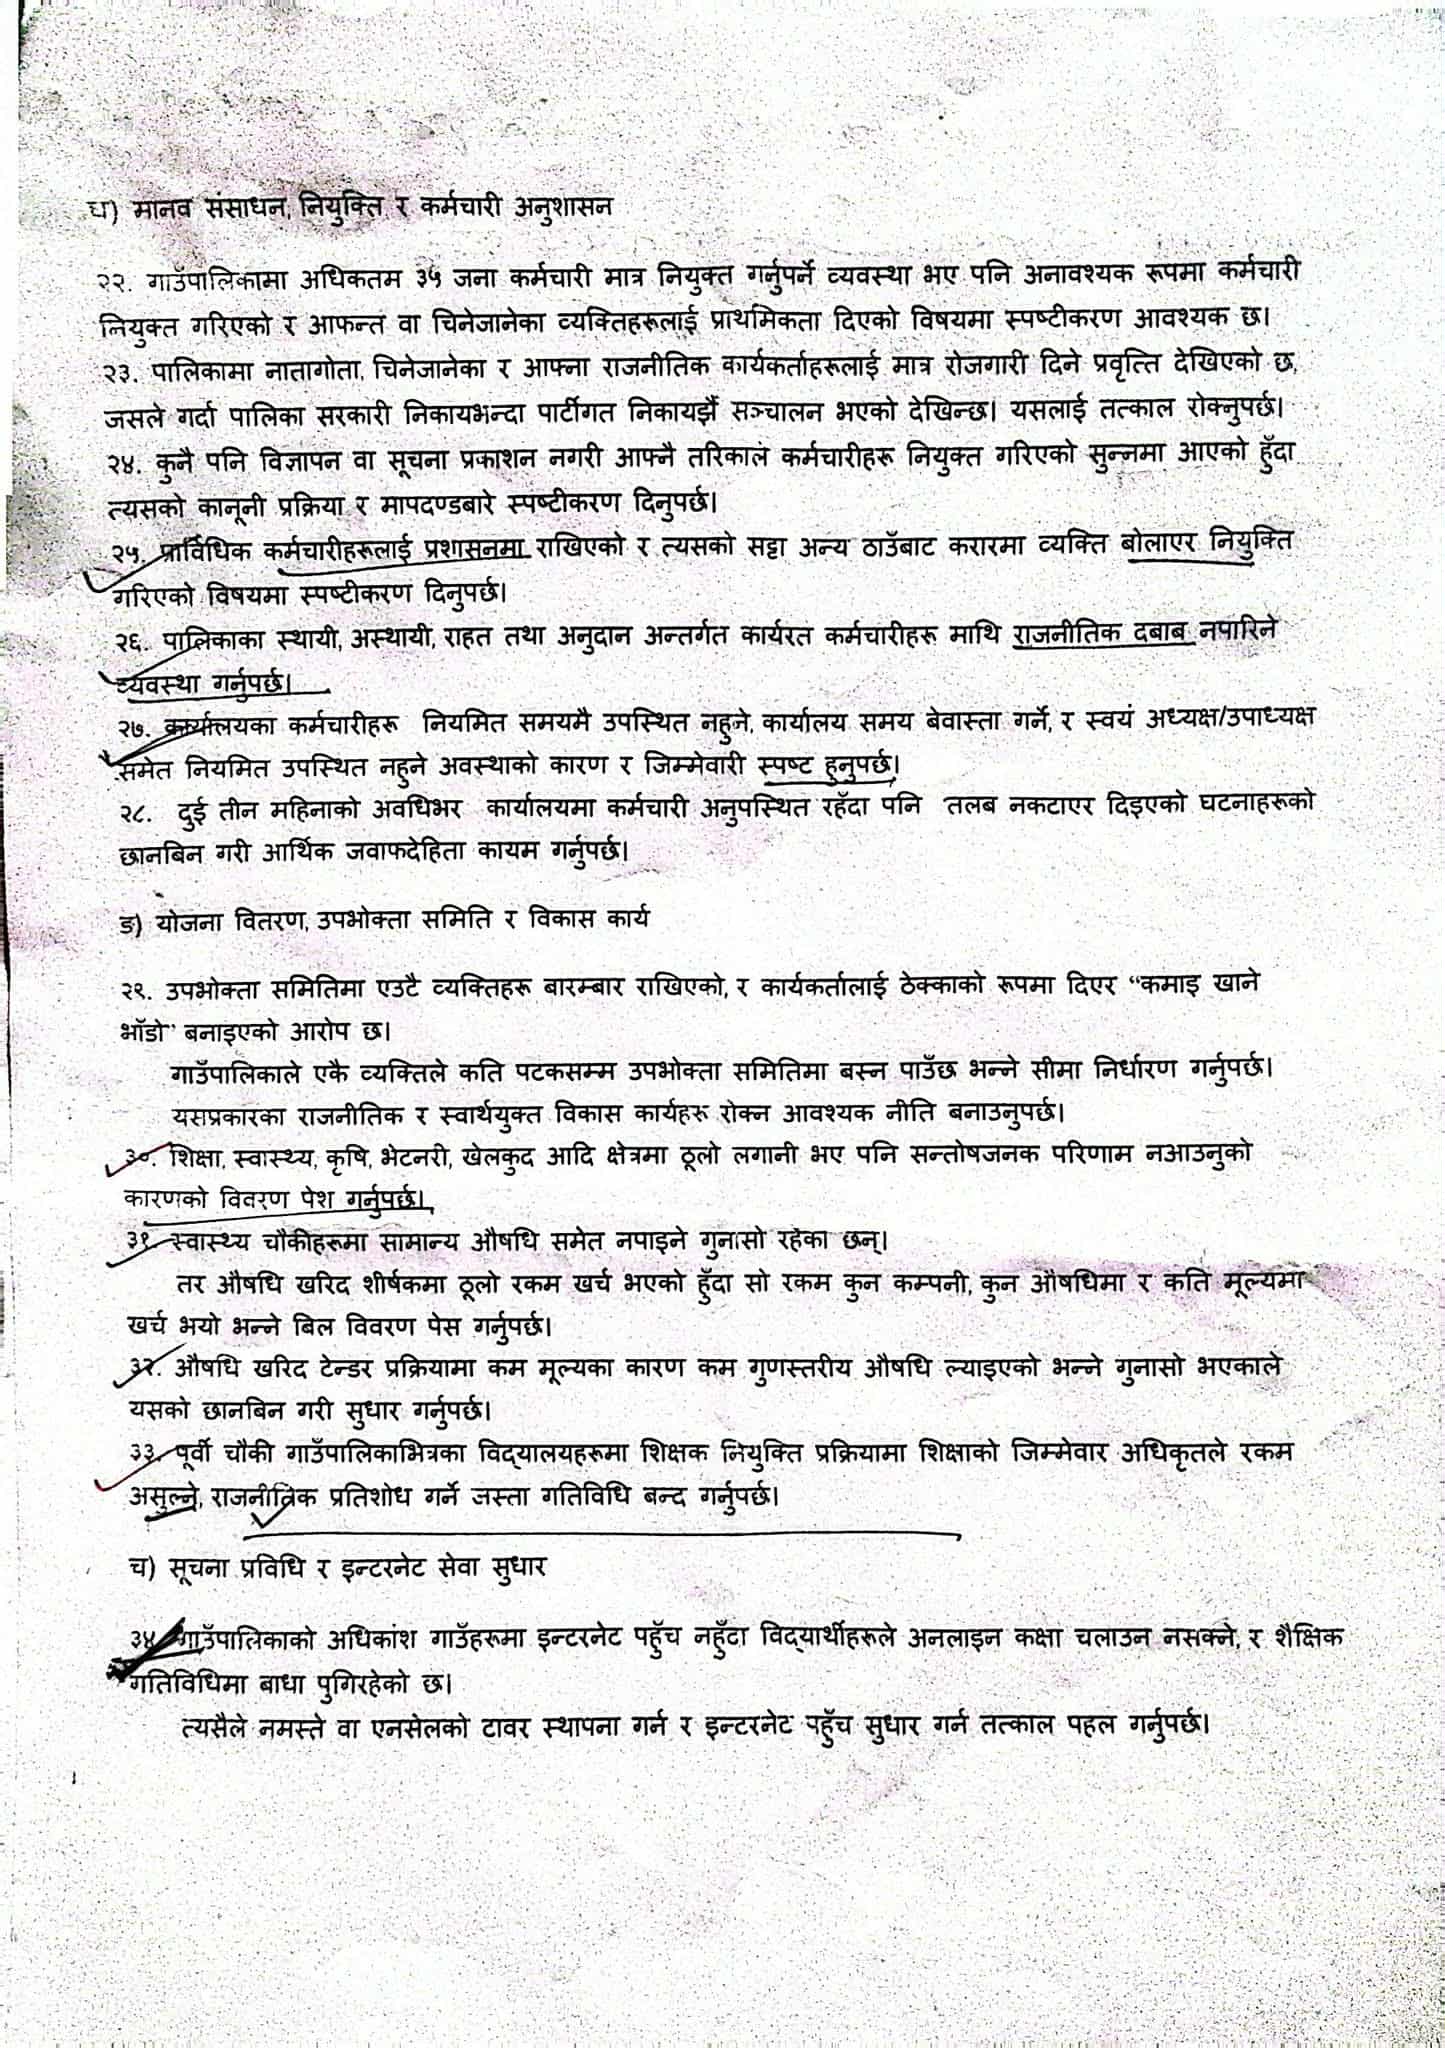 घ) मानव संसाधन, नियुक्ति र कर्मचारी अनुशासन
२२. गाउँपालिकामा अधिकतम ३५ जना कर्मचारी मात्र नियुक्त गर्नुपर्ने व्यवस्था भए पनि अनावश्यक रूपमा कर्मचारी
नियुक्त गरिएको र आफन्त वा चिनेजानेका व्यक्तिहरूलाई प्राथमिकता दिएको विषयमा स्पष्टीकरण आवश्यक छ।
२३. पालिकामा नातागोता, चिनेजानेका र आफ्ना राजनीतिक कार्यकर्ताहरूलाई मात्र रोजगारी दिने प्रवृत्ति देखिएको छ,
जसले गर्दा पालिका सरकारी निकायभन्दा पार्टीगत निकायझैँ सञ्चालन भएको देखिन्छ। यसलाई तत्काल रोक्नुपर्छ।
२४. कुनै पनि विज्ञापन वा सूचना प्रकाशन नगरी आफ्नै तरिकाले कर्मचारीहरू नियुक्त गरिएको सुन्नमा आएको हुँदा
त्यसको कानूनी प्रक्रिया र मापदण्डबारे स्पष्टीकरण दिनुपर्छ।
२५. प्राविधिक कर्मचारीहरूलाई प्रशासनमा राखिएको र त्यसको सट्टा अन्य ठाउँबाट करारमा व्यक्ति बोलाएर नियुक्ति
गरिएको विषयमा स्पष्टीकरण दिनुपर्छ।
२६. पालिकाका स्थायी, अस्थायी, राहत तथा अनुदान अन्तर्गत कार्यरत कर्मचारीहरू माथि राजनीतिक दबाब नपारिने
व्यवस्था गर्नुपर्छ।
२७. कार्यालयका कर्मचारीहरू नियमित समयमै उपस्थित नहुने, कार्यालय समय बेवास्ता गर्ने, र स्वयं अध्यक्ष/उपाध्यक्ष
समेत नियमित उपस्थित नहुने अवस्थाको कारण र जिम्मेवारी स्पष्ट हुनुपर्छ।
२८. दुई तीन महिनाको अवधिभर कार्यालयमा कर्मचारी अनुपस्थित रहँदा पनि तलब नकटाएर दिइएको घटनाहरूको
छानबिन गरी आर्थिक जवाफदेहिता कायम गर्नुपर्छ।
ङ) योजना वितरण, उपभोक्ता समिति र विकास कार्य
२९. उपभोक्ता समितिमा एउटै व्यक्तिहरू बारम्बार राखिएको, र कार्यकर्तालाई ठेक्काको रूपमा दिएर "कमाइ खाने
भाँडो" बनाइएको आरोप छ।
गाउँपालिकाले एकै व्यक्तिले कति पटकसम्म उपभोक्ता समितिमा बस्न पाउँछ भन्ने सीमा निर्धारण गर्नुपर्छ।
यसप्रकारका राजनीतिक र स्वार्थयुक्त विकास कार्यहरू रोक्न आवश्यक नीति बनाउनुपर्छ।
३०. शिक्षा, स्वास्थ्य, कृषि, भेटनरी, खेलकुद आदि क्षेत्रमा ठूलो लगानी भए पनि सन्तोषजनक परिणाम नआउनुको
कारणको विवरण पेश गर्नुपर्छ।
३१. स्वास्थ्य चौकीहरूमा सामान्य औषधि समेत नपाइने गुनासो रहेका छन्।
तर औषधि खरिद शीर्षकमा ठूलो रकम खर्च भएको हुँदा सो रकम कुन कम्पनी, कुन औषधिमा र कति मूल्यमा
खर्च भयो भन्ने बिल विवरण पेस गर्नुपर्छ।
३२. औषधि खरिद टेन्डर प्रक्रियामा कम मूल्यका कारण कम गुणस्तरीय औषधि ल्याइएको भन्ने गुनासो भएकाले
यसको छानबिन गरी सुधार गर्नुपर्छ।
३३. पूर्वी चौकी गाउँपालिकाभित्रका विद्यालयहरूमा शिक्षक नियुक्ति प्रक्रियामा शिक्षाको जिम्मेवार अधिकृतले रकम
असुल्ने, राजनीतिक प्रतिशोध गर्ने जस्ता गतिविधि बन्द गर्नुपर्छ।
च) सूचना प्रविधि र इन्टरनेट सेवा सुधार
३४. गाउँपालिकाको अधिकांश गाउँहरूमा इन्टरनेट पहुँच नहुँदा विद्यार्थीहरूले अनलाइन कक्षा चलाउन नसक्ने, र शैक्षिक
गतिविधिमा बाधा पुगिरहेको छ।
त्यसैले नमस्ते वा एनसेलको टावर स्थापना गर्न र इन्टरनेट पहुँच सुधार गर्न तत्काल पहल गर्नुपर्छ।